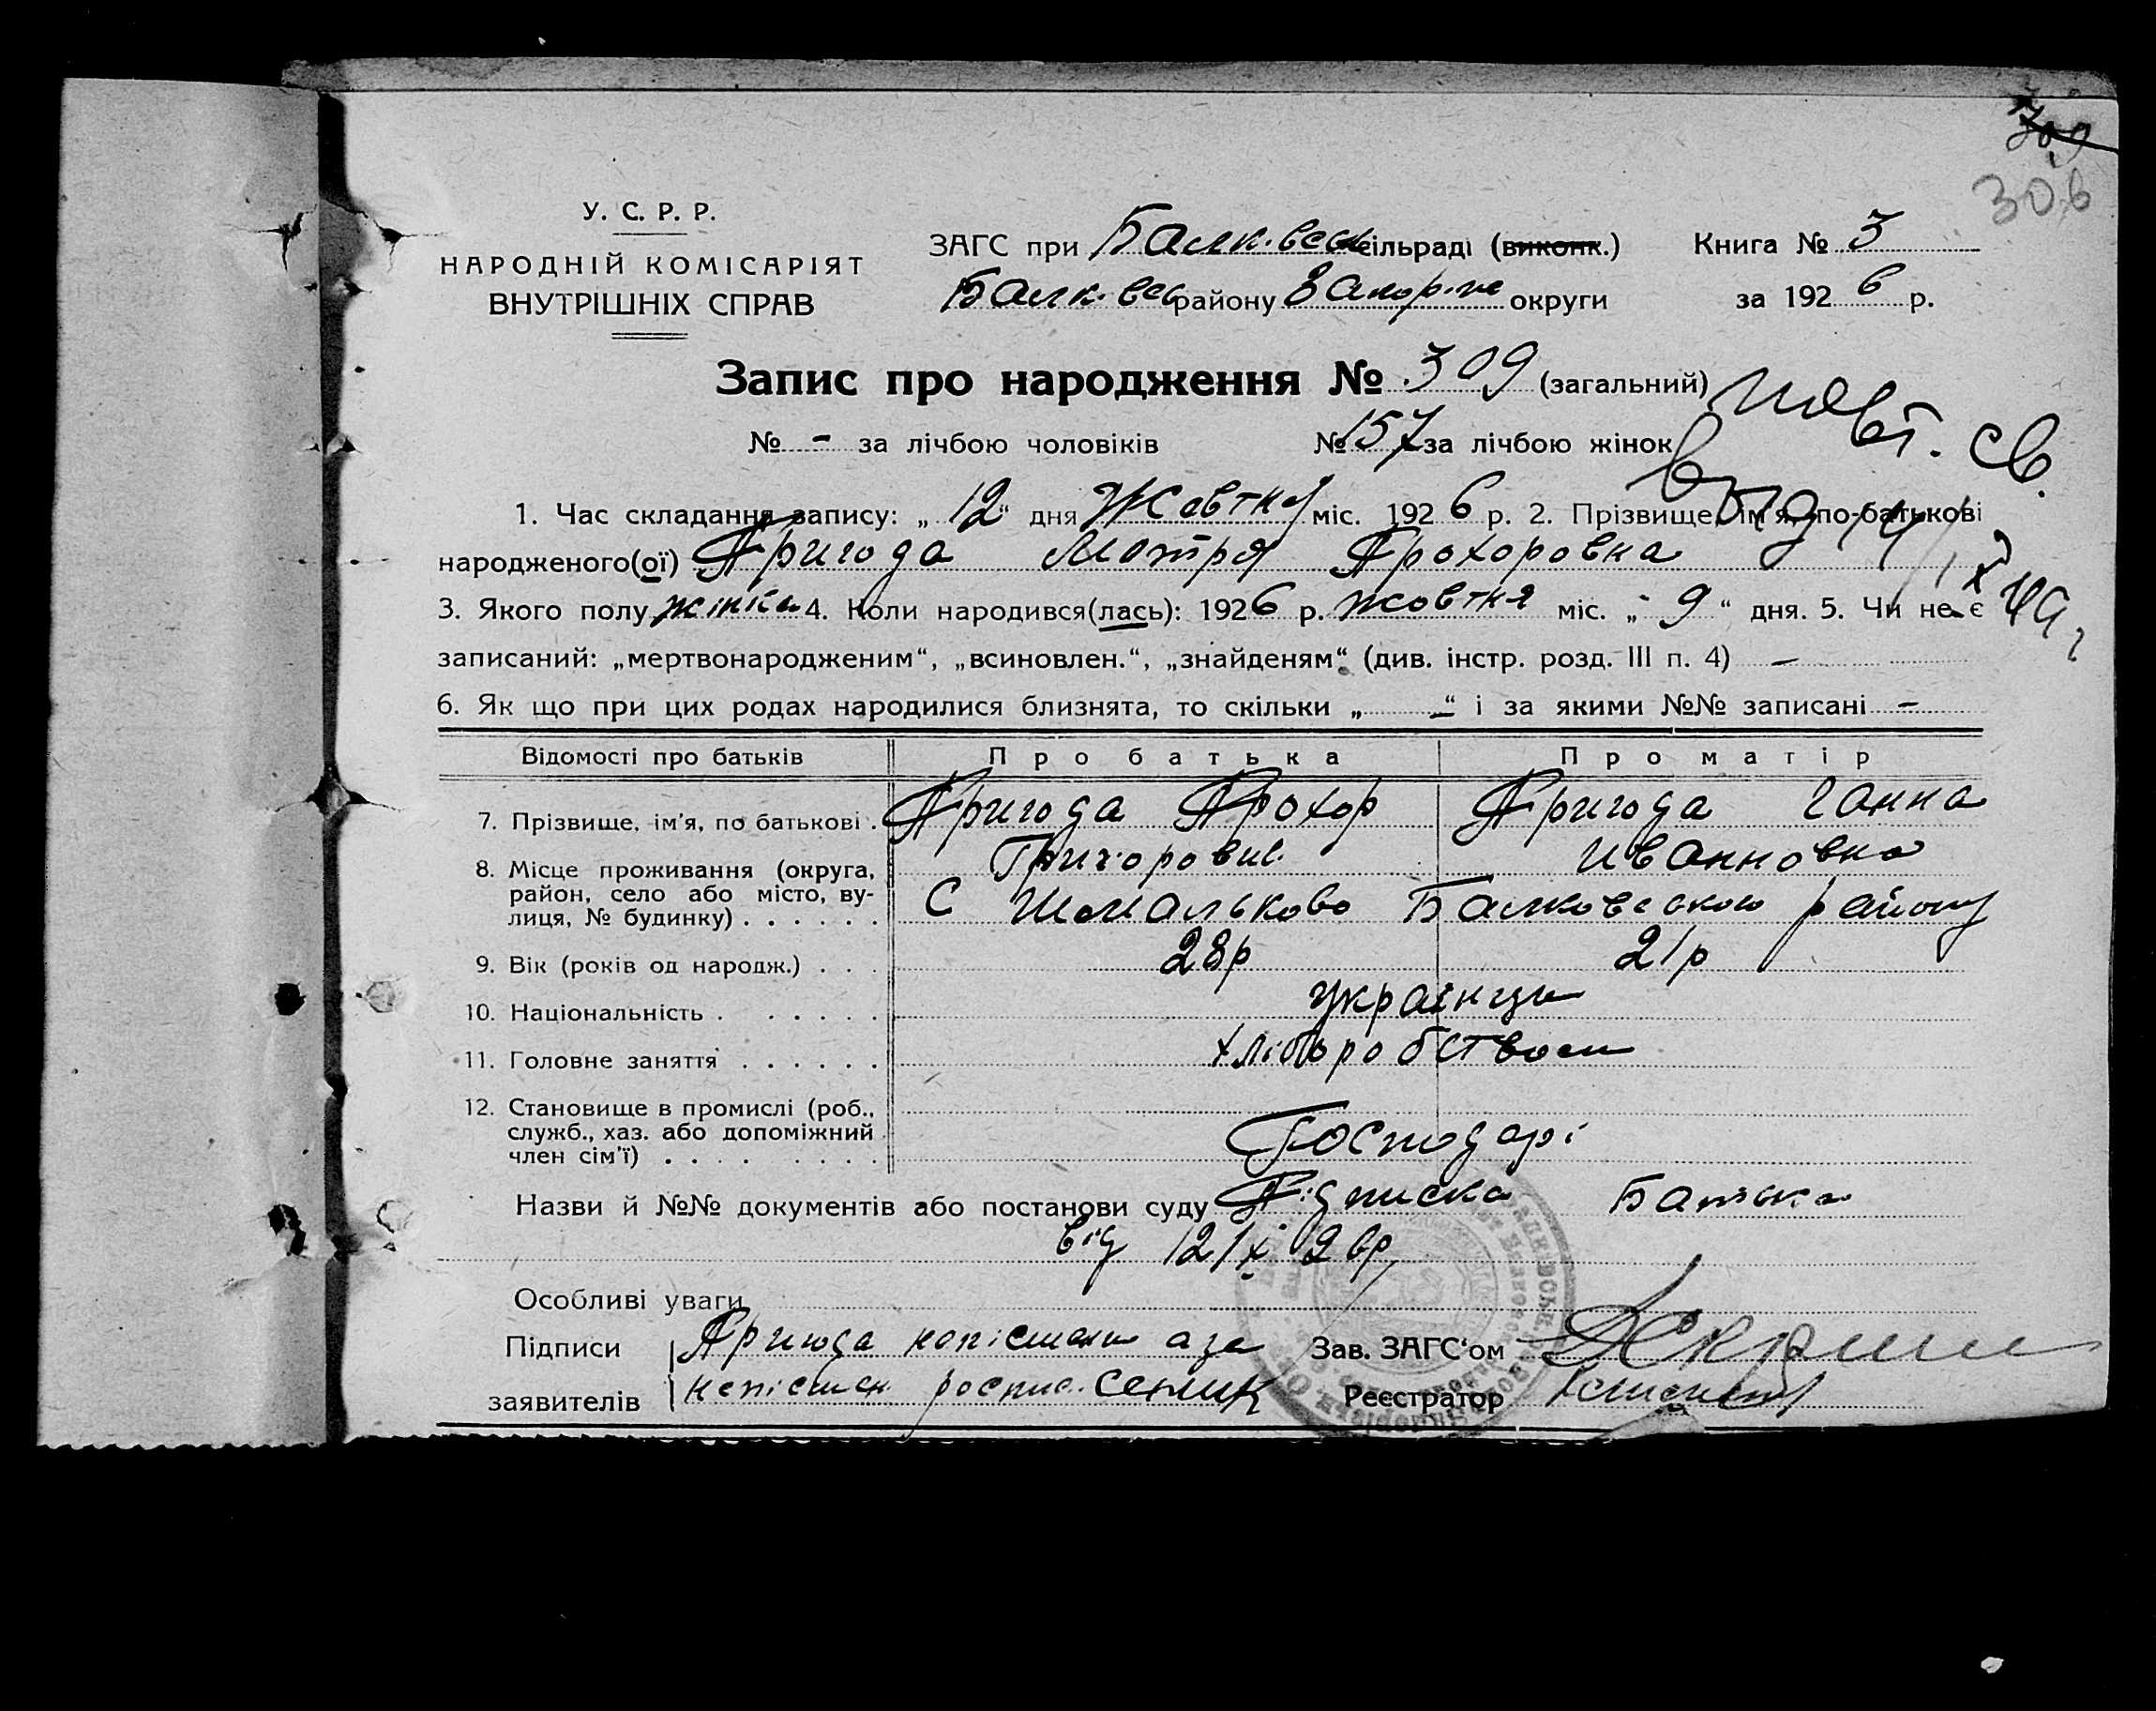 306
У. С. Р. Р.
НАРОДНІЙ КОМІСАРІЯТ
ВНУТРІШНІХ СПРАВ
ЗАГС при Балк. сільраді (виконк.) Книга № 3
Балк. району Запор. округи за 1926 р.
Запис про народження № 309 (загальний)
повт. св.
№ - за лічбою чоловіків № 157 за лічбою жінок
1. Час складання запису: „12“ дня Жовтня міс. 1926 р. 2. Прізвище, ім'я, по-батькові
народженого(ої) Пригода Мотря Прохоровка
3. Якого полу жінка 4. Коли народився(лась): 1926 р. жовтня міс. „9“ дня. 5. Чи не є
записаний: „мертвонародженим“, „всиновлен.“, „знайденям“ (див. інстр. розд. III п. 4) -
6. Як що при цих родах народилися близнята, то скільки „-“ і за якими №№ записані -
Відомості про батьків Про батька Про матір
7. Прізвище, ім'я, по батькові . Пригода Прохор Пригода Ганна
Григорович Ивановна
8. Місце проживання (округа,
район, село або місто, ву-
лиця, № будинку) . . . . . . С Балковського району
9. Вік (років од народж.) . . . 28р 21р
10. Національність . . . . . . українци
11. Головне заняття . . . . . . хліборобством
12. Становище в промислі (роб.,
служб., хаз. або допоміжний
член сім'ї) . . . . . . . . Господарі
Назви й №№ документів або постанови суду Підписка Батька
від 12/X 26р
Особливі уваги
Підписи Пригода неписмен а за Зав. ЗАГС'ом
заявителів неписмен роспис. Реєстратор